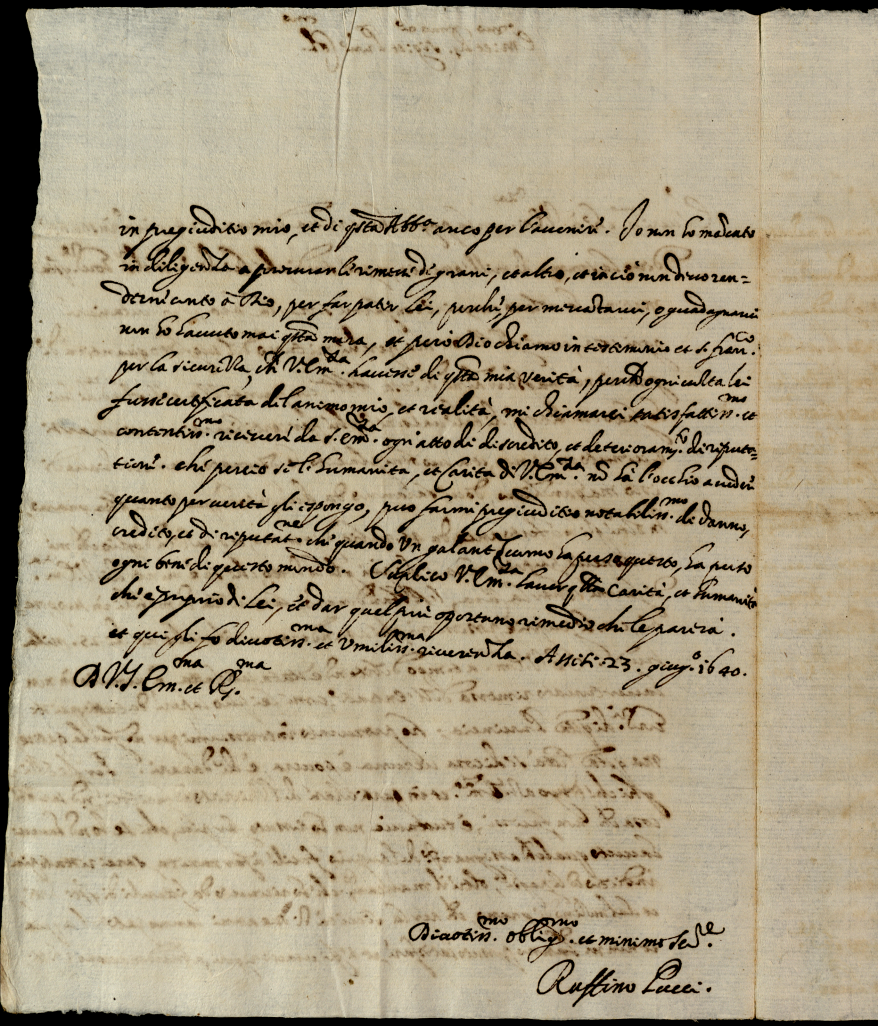 in pregiuditio mio, et di qsta Abb.a anco per l'avvenire. Io non ho mancato
in diligenza a procurarli rimesse di grani, et altro, et in ciò non devo ren=
derne conto à Dio, per far patir lei, perche per mercantarvi, o guadagnarvi
non ho havuto mai qsta mira, et però Dio chiamo in testimonio et S. Fran.co
per la sicurezza, ch V. Em.za havesse di qsta mia verità, perche ogni volta lei
fusse certificata del animo mio, et realità, mi chiamarei satisfattiss.mo et
contentiss.mo ricevere da S. Em.za ogni atto di discredito, et deterioram.to di riputa=
tione. che perciò se l'humanità, et Carità di V. Em.za nō hà l'occhio a creder
quanto per verità gli espongo, puo farmi pregiuditio notabiliss.mo di danno,
credito, et di reputat.ne che quando un galant'huomo ha perso questo, ha perso
ogni bene di questo mondo. Suplico V. Em.za haver qsta Carità, et humanità
che è proprio di Lei, et dar quel più oportuno rimedio che le parerà.
et qui gli fò divotiss.ma et umiliss.ma riverenza. Assisi 23. giug.o 1640.
D V. S. Em.ma et R.ma
Divotiss.mo oblig.mo et minimo Ser.re
Ruffino Lucci.